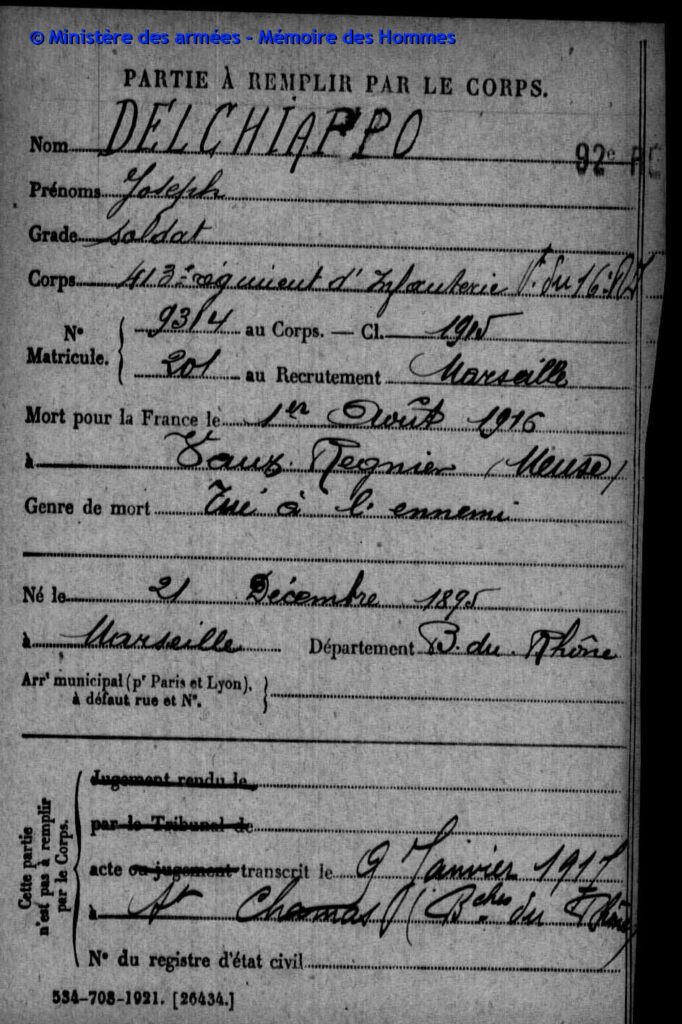 © Ministère des armées - Mémoire des Hommes
PARTIE À REMPLIR PAR LE CORPS.
Nom DELCHIAPPO
92e
Prénoms Joseph
Grade soldat
Corps 413e régiment d'Infanterie P. du 16e
N° Matricule. 9314 au Corps. — Cl. 1915
201 au Recrutement Marseille
Mort pour la France le 1er Août 1916
à Vaux-Regnier (Meuse)
Genre de mort Tué à l'ennemi
Né le 21 Décembre 1895
à Marseille Département B. du Rhône
Arrt municipal (pr Paris et Lyon),
à défaut rue et N°.
Cette partie n'est pas à remplir par le Corps.
Jugement rendu le
par le Tribunal de
acte ou jugement transcrit le 9 Janvier 1917
à St Chamas (Bches du Rhône)
N° du registre d'état civil
534-708-1921. [26434.]